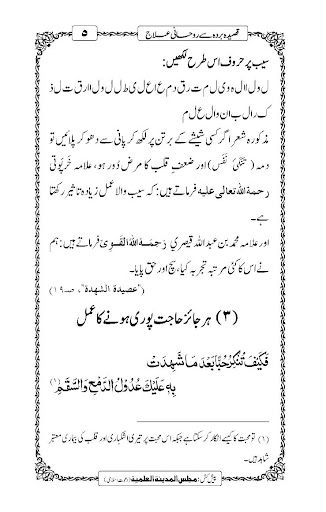 قصیدہ بردہ سے روحانی علاج
۵
سیب پر حروف اس طرح لکھیں:
ل و ل ا ا ل ہ و ی ل م ت ر ق د م ع ا ع ل ی ط ل ل و ل ا ا ر ق ت ل ذ
ک ر ا ل ب ا ن و ا ل ع ل م
مذکورہ شعر اگر کسی شیشے کے برتن پر لکھ کر پانی سے دھو کر پلائیں تو
دمہ (تنگیٔ نَفَس) اور ضعفِ قلب کا مرض دُور ہو، علامہ خَرپُوتی
رحمۃ اللہ تعالی علیہ فرماتے ہیں: کہ سیب والا عمل زیادہ تاثیر رکھتا
ہے۔
اور علامہ محمد بن عبد اللہ قیصری رَحِمَهُ اللهُ القَوِی فرماتے ہیں: ہم
نے اس کا کئی مرتبہ تجربہ کیا، سچ اور حق پایا۔
("عصیدۃ الشھدۃ"، صـ۱۹)
(۳) ہر جائز حاجت پوری ہونے کا عمل
فَكَيْفَ تُنْكِرُ حُبًّا بَعْدَ مَا شَهِدَتْ
بِهٖ عَلَيْكَ عُدُوْلُ الدَّمْعِ وَالسَّقَمِ(۱)
(۱) تو محبت کا کیسے انکار کر سکتا ہے جبکہ اس محبت پر تیری اشکباری اور قلب کی بیماری معتبر
شاہد ہیں۔
پیش کش: مجلس المدینۃ العلمیۃ (دعوتِ اسلامی)